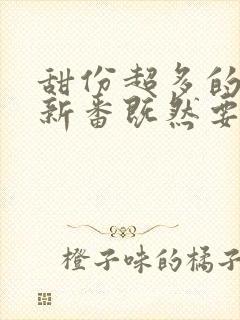 甜份超多的
新番既然要
橙子味的橘子